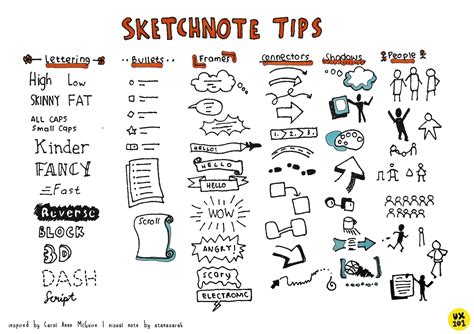 SKETCHNOTE TIPS
Lettering
High Low
SKINNY FAT
ALL CAPS
Small Caps
Kinder
FANCY
Fast
Reverse
BLOCK
3D
DASH
Script
Bullets
Scroll
Frames
HELLO!
HELLO
HELLO
WOW
ANGRY!
scary
ELECTRONIC
Connectors
1. 2. 3.
Shadows
People
inspired by Carol Anne McGuire | visual note by atanasarah
UX
101